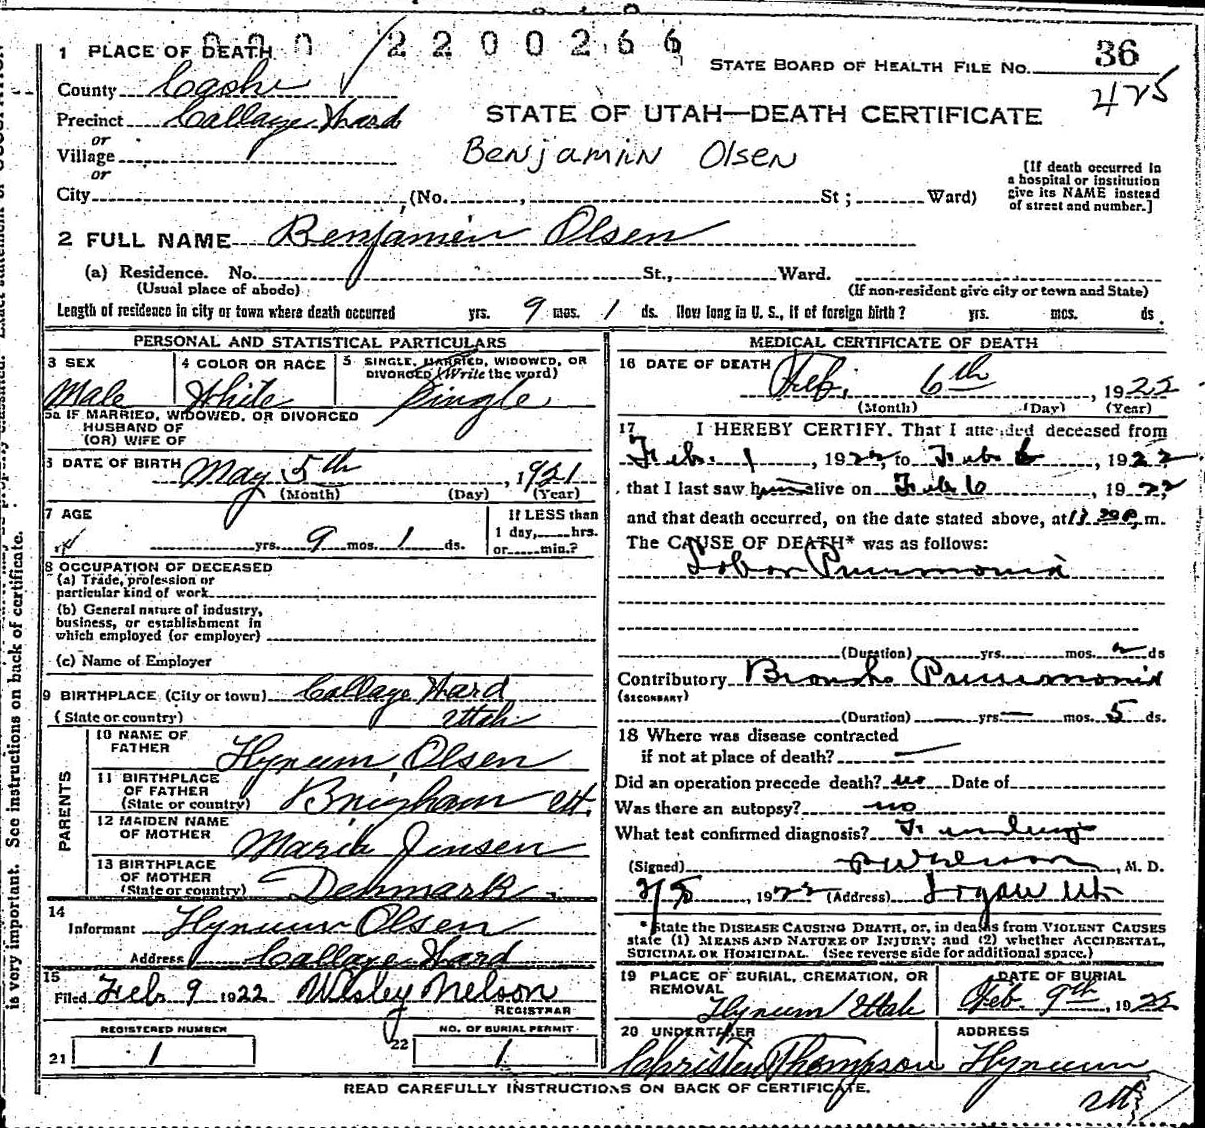 000 2200266
1 PLACE OF DEATH
STATE BOARD OF HEALTH FILE NO. 36
425
County Cache
Precinct Collage Ward
STATE OF UTAH—DEATH CERTIFICATE
or
Village
Benjamin Olsen
or
City (No. , St; Ward)
[If death occurred in a hospital or institution give its NAME instead of street and number.]
2 FULL NAME Benjamin Olsen
(a) Residence. No. St., Ward.
(Usual place of abode) (If non-resident give city or town and State)
Length of residence in city or town where death occurred yrs. 9 mos. 1 ds. How long in U. S., if of foreign birth? yrs. mos. ds.
PERSONAL AND STATISTICAL PARTICULARS
3 SEX
Male
4 COLOR OR RACE
White
5 SINGLE, MARRIED, WIDOWED, OR
DIVORCED (Write the word)
Single
5a IF MARRIED, WIDOWED, OR DIVORCED
HUSBAND OF
(OR) WIFE OF
6 DATE OF BIRTH May 5th, 1921
(Month) (Day) (Year)
7 AGE
yrs. 9 mos. 1 ds.
If LESS than
1 day, hrs.
or min.?
8 OCCUPATION OF DECEASED
(a) Trade, profession or
particular kind of work
(b) General nature of industry,
business, or establishment in
which employed (or employer)
(c) Name of Employer
9 BIRTHPLACE (City or town) Collage Ward
(State or country) Utah
PARENTS
10 NAME OF
FATHER Hyrum Olsen
11 BIRTHPLACE
OF FATHER
(State or country) Brigham Ut.
12 MAIDEN NAME
OF MOTHER Maria Jensen
13 BIRTHPLACE
OF MOTHER
(State or country) Denmark
14
Informant Hyrum Olsen
Address Collage Ward
15
Filed Feb 9 1922 Wesley Nelson
REGISTRAR
REGISTERED NUMBER
21 1
NO. OF BURIAL PERMIT
22 1
MEDICAL CERTIFICATE OF DEATH
16 DATE OF DEATH
Feb. 6th, 1922
(Month) (Day) (Year)
17 I HEREBY CERTIFY, That I attended deceased from
Feb. 1, 1922, to Feb 6, 1922
that I last saw him alive on Feb 6, 1922
and that death occurred, on the date stated above, at m.
The CAUSE OF DEATH* was as follows:
Lobar Pneumonia
(Duration) yrs. mos. 2 ds
Contributory Broncho Pneumonia
(SECONDARY)
(Duration) — yrs — mos. 5 ds.
18 Where was disease contracted
if not at place of death? —
Did an operation precede death? no Date of
Was there an autopsy? no
What test confirmed diagnosis?
(Signed) , M. D.
, 1922 (Address) Logan Ut
*State the DISEASE CAUSING DEATH, or, in deaths from VIOLENT CAUSES
state (1) MEANS AND NATURE OF INJURY; and (2) whether ACCIDENTAL,
SUICIDAL OR HOMICIDAL. (See reverse side for additional space.)
19 PLACE OF BURIAL, CREMATION, OR
REMOVAL
Hyrum Utah
DATE OF BURIAL
Feb. 9th, 1922
20 UNDERTAKER
Christen Thompson
ADDRESS
Hyrum
Ut
READ CAREFULLY INSTRUCTIONS ON BACK OF CERTIFICATE.
is very important. See instructions on back of certificate.